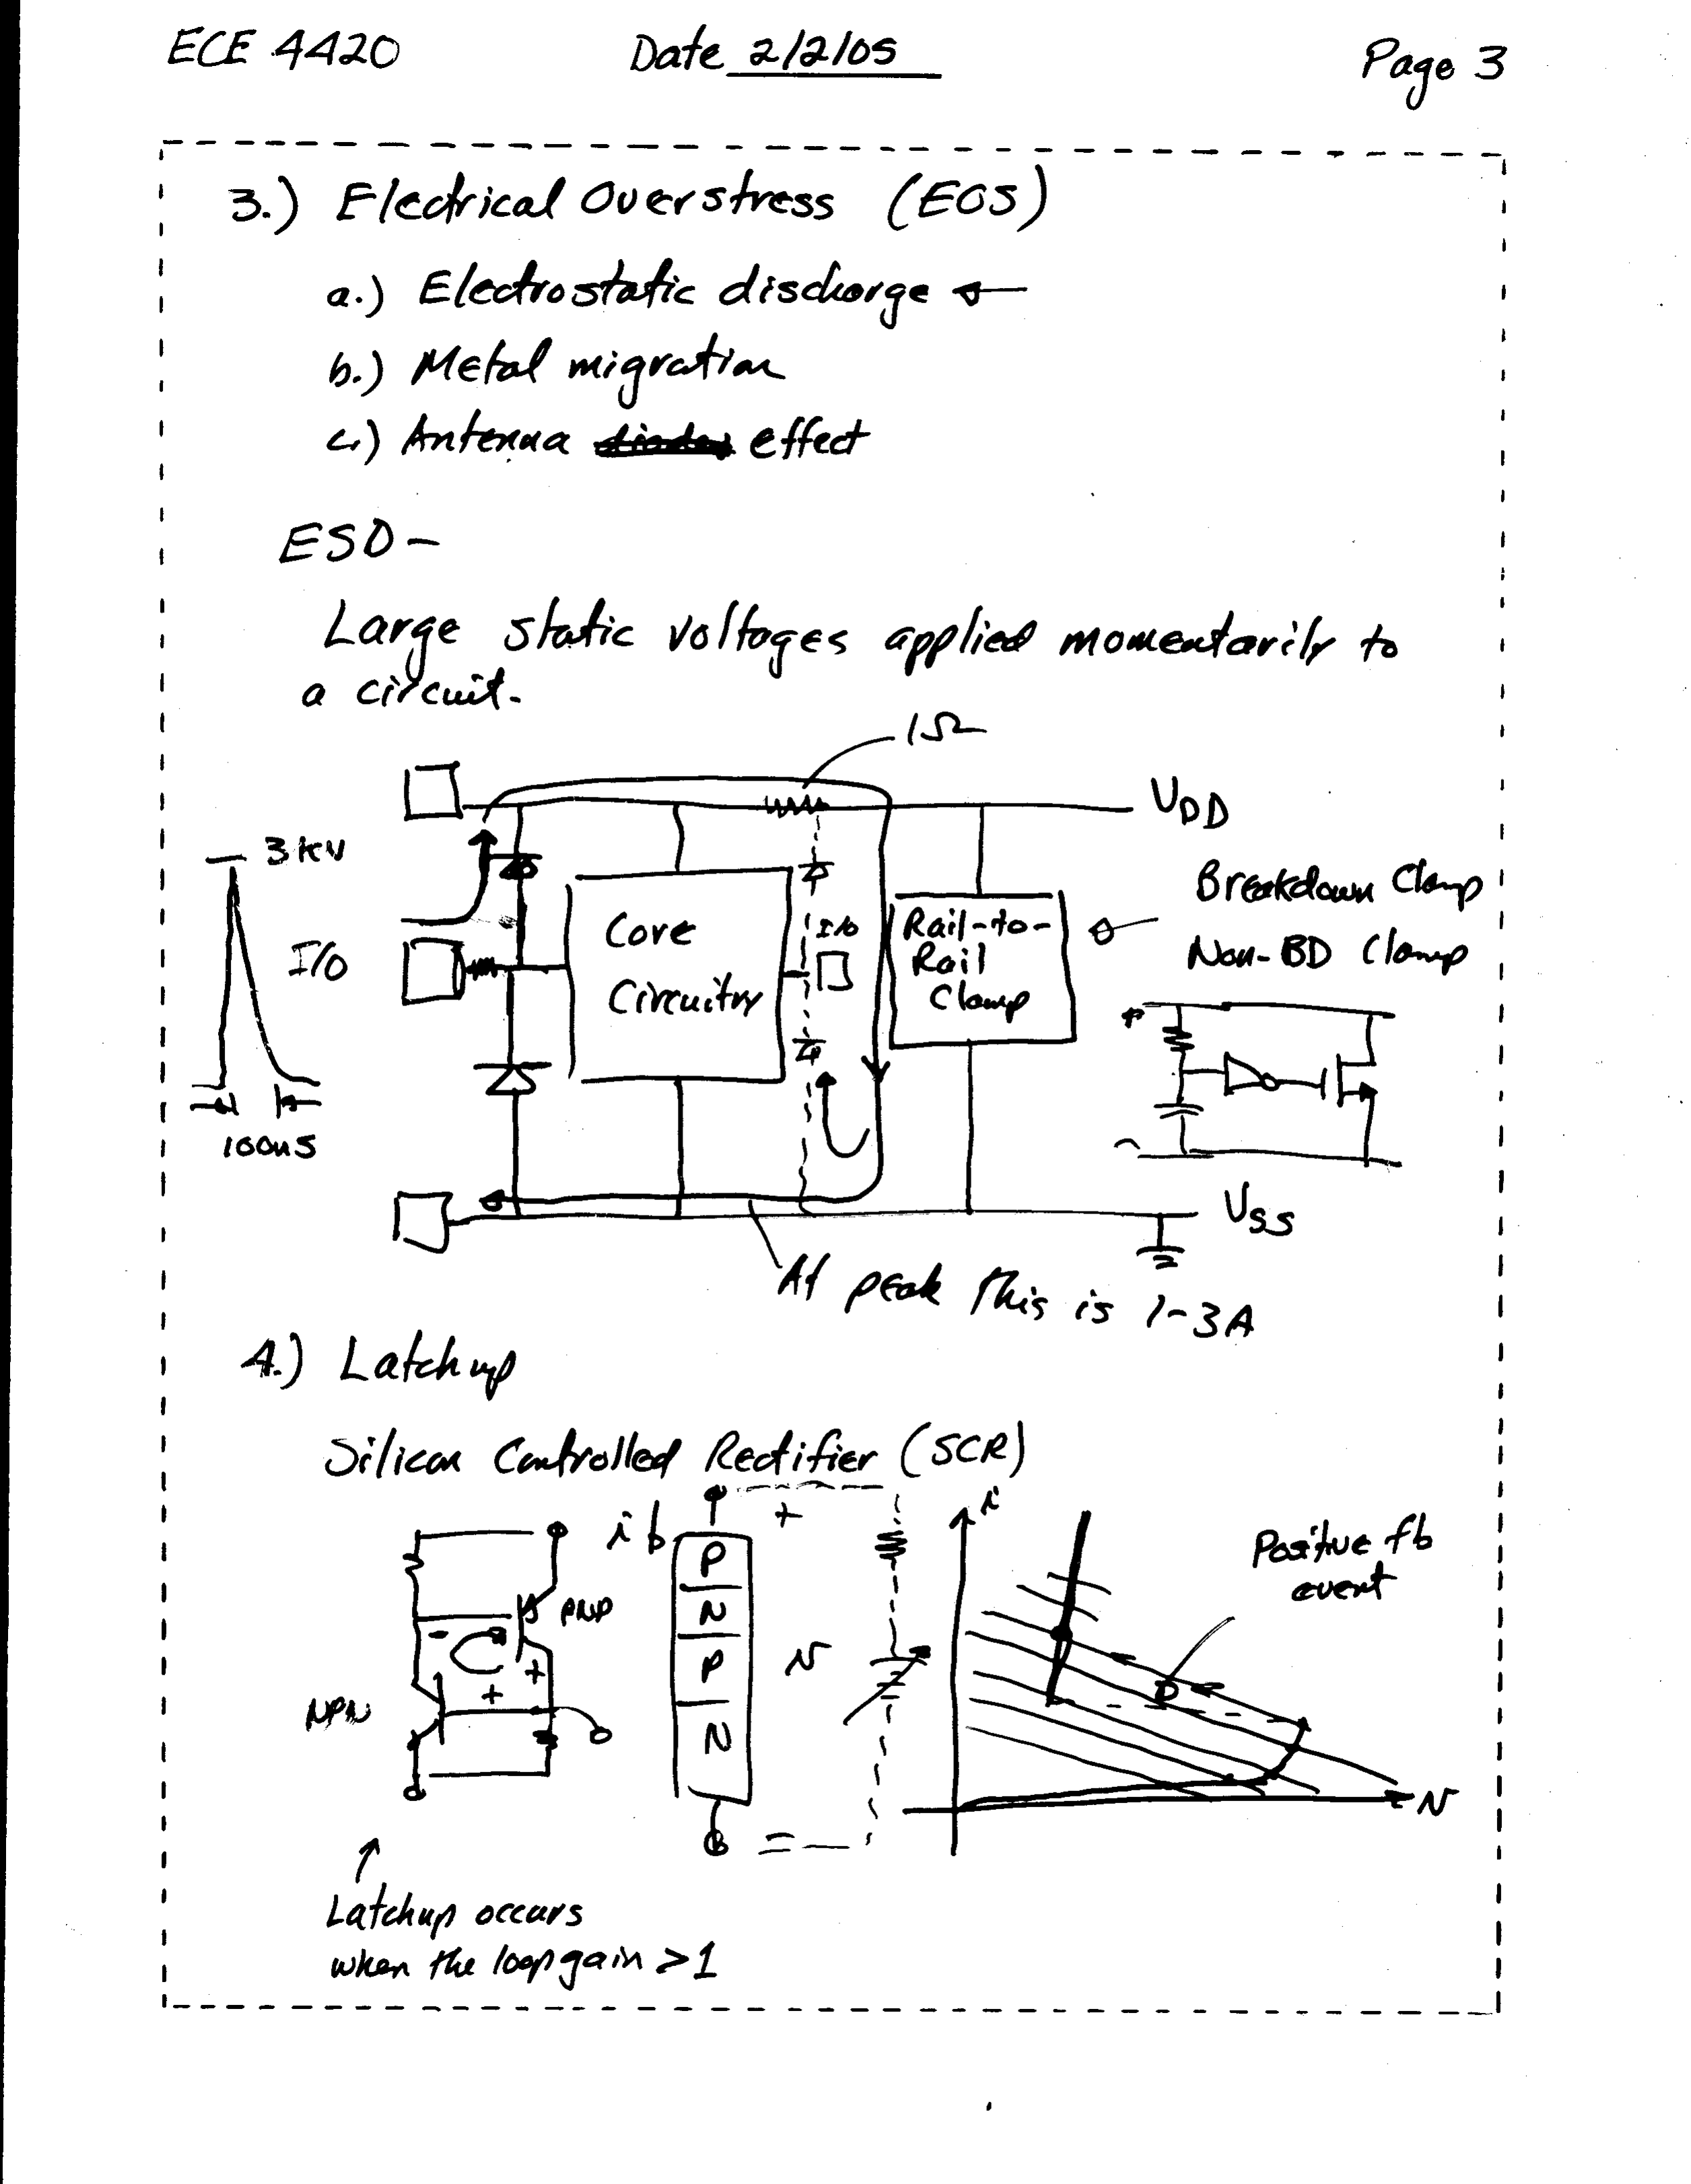 ECE 4420 Date 2/2/05 Page 3
3.) Electrical Overstress (EOS)
a.) Electrostatic discharge
b.) Metal migration
c.) Antenna effect
ESD -
Large static voltages applied momentarily to
a circuit.
1Ω
VDD
3kV
Breakdown Clamp
Core
Circuitry
I/O
Rail-to-
Rail
Clamp
I/O
Non-BD Clamp
+
-
100ns
VSS
At peak this is 1-3A
4.) Latchup
Silicon Controlled Rectifier (SCR)
i
+
i
Positive fb
event
P
N
P
N
PNP
-
+
+
v
NPN
v
-
Latchup occurs
when the loop gain > 1